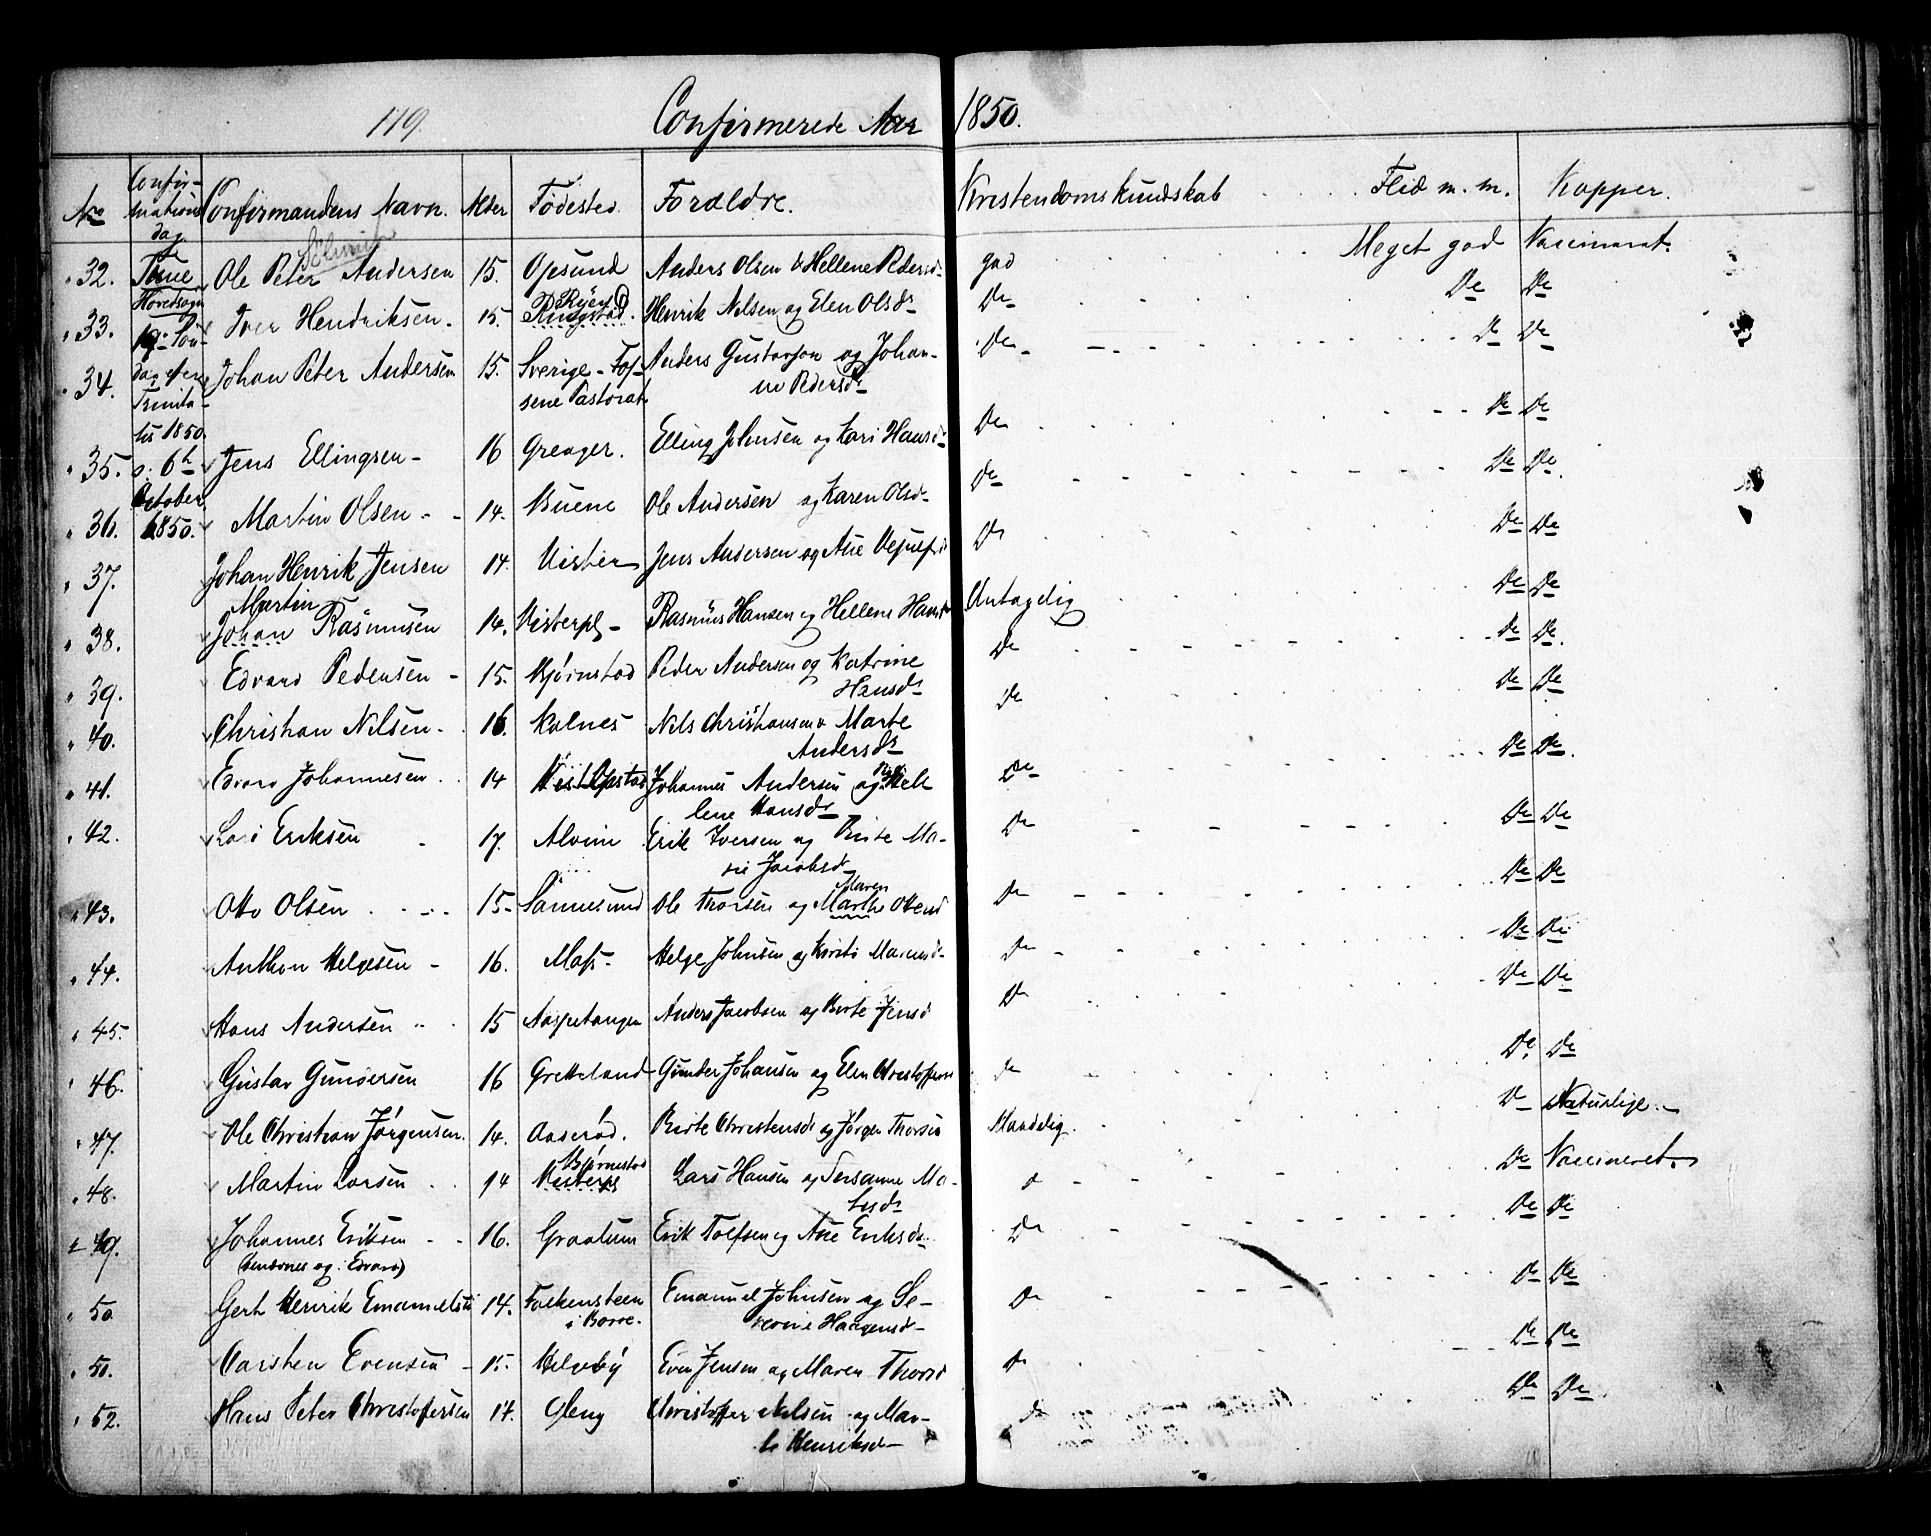 119.
Confirmerede Aar 1850.
No Confirmations dag Confirmandens Navn. Alder Fødested. Forældre. Kristendomskundskab Flid m. m. Kopper.
32. Tune Ole Peter Andersen 15. Opsund Anders Olsen & Hellene Pedersd. god Meget god Vaccineret.
Hovedsogn
33. Iver Hendriksen. 15. Ryen Henrik Nilsen og Elen Olsdr Do Do Do
19de Søn-
34. dag efter Johan Peter Andersen 15. Sverige - Fos- Anders Gustavson og Johan- Do Do Do
Trinita- sene Pastorat ne Pedersdr
tis 1850.
35. d. 6te Jens Ellingsen 16 Greager. Elling Johnsen og Kari Hansdr Do Do Do
October
36. 1850. Martin Olsen 14. Buene Ole Andersen og Karen Olsdr Do Do Do
37. Johan Henrik Jensen 14. Vister Jens Andersen og Ane Do Do Do
Martin
38. Johan Rasmusen 14. Visterpl Rasmus Hansen og Hellene Hansdr Antagelig Do Do
39. Edvard Pedersen 15. Bjørnstad Peder Andersen og Katrine Do Do Do
Hansdr
40. Christian Nilsen 16. Kalnes Nils Christiansen & Marte Do Do Do
Andersdr
41. Edvard Johannesen 14 Johannes Andersen og Hel- Do Do Do
lene Hansdr
42. Eriksen 17. Alvim Erik Iversen og Birte Ma- Do Do Do
rie Jacobsd
Maren
43. Otto Olsen 15 Sannesund Ole Thorsen og Marthe Do Do Do
44. Anthon Helgesen 16. Moss Helge Johnsen og Kirsti Do Do Do
45. Hans Andersen 15 Aaspetangen Anders Jacobsen og Birte Jensd Do Do Do
46. Gustav Gundersen 16 Gretteland Gunder Johansen og Elen Christoffersd Do Do Do
47. Ole Christian Jørgensen. 14. Aaserød. Birte Christensdr og Jørgen Thorsen Maadelig. Do Naturlige
Bjørnstad
48. Martin Larsen 14 Lars Hansen og Susanne Ma- Do Do Vaccineret
49. Johannes Eriksen 16. Graalum Erik Tolfsen og Ane Eriksdr Do Do Do
50. Gert Henrik Emanuelsen 14. Falkensteen Emanuel Johnsen og Se- Do Do Do
i Borre. verine Haagensd
50. Carsten Evensen 15. Helgeby Even Jensen og Maren Thorsd Do Do Do
52. Hans Peter Christofersen 14. Gleng Christoffer Nilsen og Mar- Do Do Do
te Henriksd